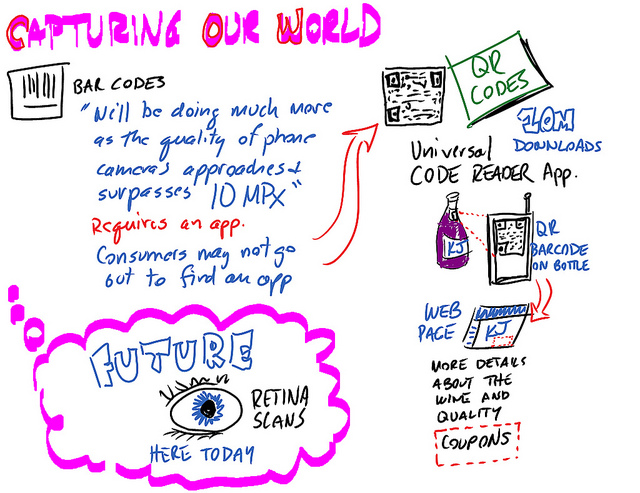 CAPTURING OUR WORLD
BAR CODES
"We'll be doing much more
as the quality of phone
camera's approaches &
surpasses 10 MPX"
Requires an app.
Consumers may not go
out to find an app
QR
CODES
10M
DOWNLOADS
Universal
CODE READER App.
KJ
QR
BARCODE
ON BOTTLE
WEB
PAGE
KJ
MORE DETAILS
ABOUT THE
WINE AND
QUALITY
COUPONS
FUTURE
RETINA
SCANS
HERE TODAY